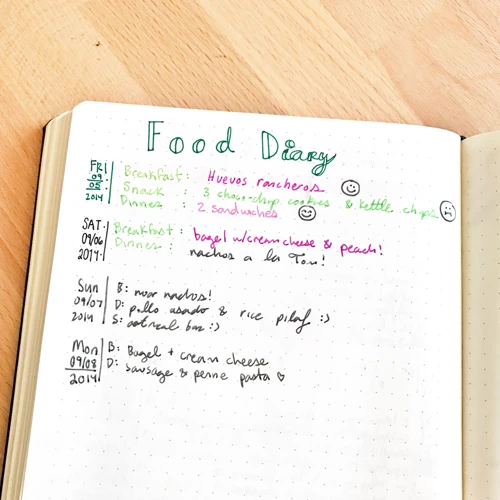 Food Diary
FRI 09 05 2014
Breakfast: Huevos rancheros
Snack: 3 choco-chip cookies & kettle chips
Dinner: 2 sandwiches
SAT 09/06 2014
Breakfast: bagel w/cream cheese & peach!
Dinner: nachos a la Tom!
Sun 09/07 2014
B: more nachos!
D: pollo asado & rice pilaf :)
S: oatmeal bar :)
Mon 09/08 2014
B: Bagel + cream cheese
D: sausage & penne pasta ♡